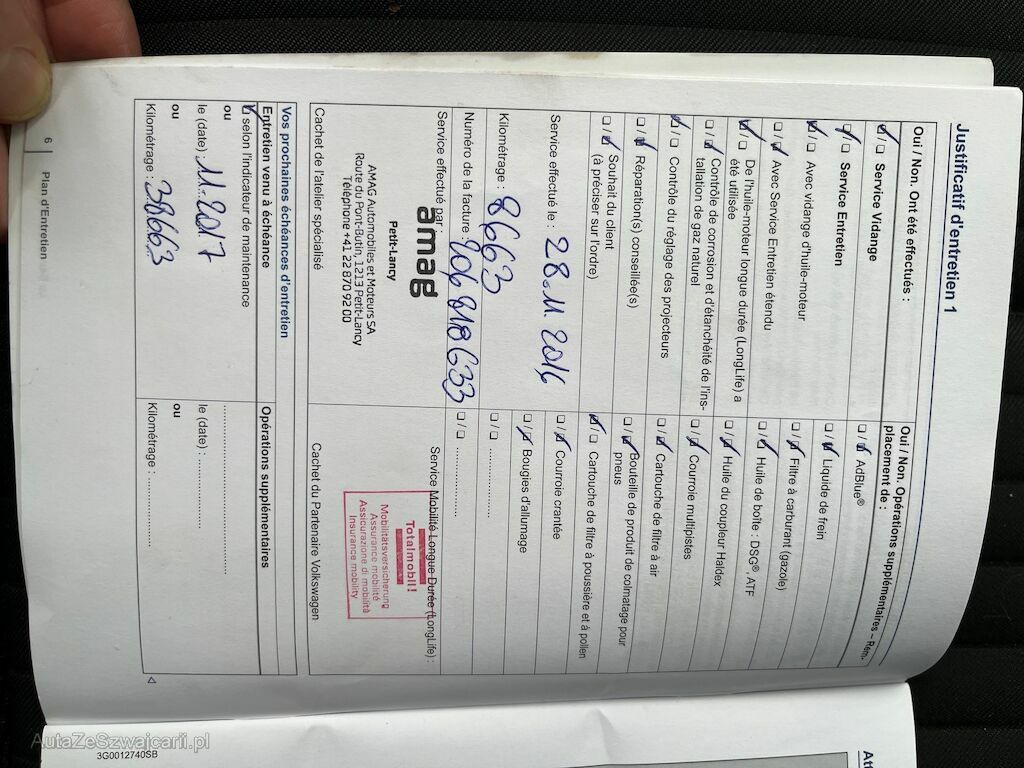 Justificatif d'entretien 1
Oui / Non. Ont été effectués :
☑ / ☐ Service Vidange
☑ / ☐ Service Entretien
☑ / ☐ Avec vidange d'huile-moteur
☐ / ☑ Avec Service Entretien étendu
☑ / ☐ De l'huile-moteur longue durée (LongLife) a
été utilisée
☐ / ☑ Contrôle de corrosion et d'étanchéité de l'ins-
tallation de gaz naturel
☑ / ☐ Contrôle du réglage des projecteurs
☐ / ☑ Réparation(s) conseillée(s)
☐ / ☑ Souhait du client
(à préciser sur l'ordre)
Service effectué le : 28.11.2016
Kilométrage : 8663
Numéro de la facture 206 818633
Service effectué par :
amag
Petit-Lancy
AMAG Automobiles et Moteurs SA
Route du Pont-Butin, 1213 Petit-Lancy
Téléphone +41 22 870 92 00
Cachet de l'atelier spécialisé
Oui / Non. Opérations supplémentaires – Rem-
placement de :
☐ / ☑ AdBlue®
☐ / ☑ Liquide de frein
☐ / ☑ Filtre à carburant (gazole)
☐ / ☑ Huile de boîte : DSG®, ATF
☐ / ☑ Huile du coupleur Haldex
☐ / ☑ Courroie multipistes
☐ / ☑ Cartouche de filtre à air
☐ / ☑ Bouteille de produit de colmatage pour
pneus
☑ / ☐ Cartouche de filtre à poussière et à pollen
☐ / ☑ Courroie crantée
☐ / ☑ Bougies d'allumage
☐ / ☐ ....................
☐ / ☐ ....................
Service Mobilité Longue Durée (LongLife) :
Totalmobil!
Mobilitätsversicherung
Assurance mobilité
Assicurazione di mobilità
Insurance mobility
Cachet du Partenaire Volkswagen
Vos prochaines échéances d'entretien
Entretien venu à échéance
☑ selon l'indicateur de maintenance
ou
le (date) : 11.2017
ou
Kilométrage : 38663
Opérations supplémentaires
..............................
le (date) : ....................
ou
Kilométrage : ....................
6 Plan d'Entretien
3G0012740SB
Att
AutaZeSzwajcarii.pl